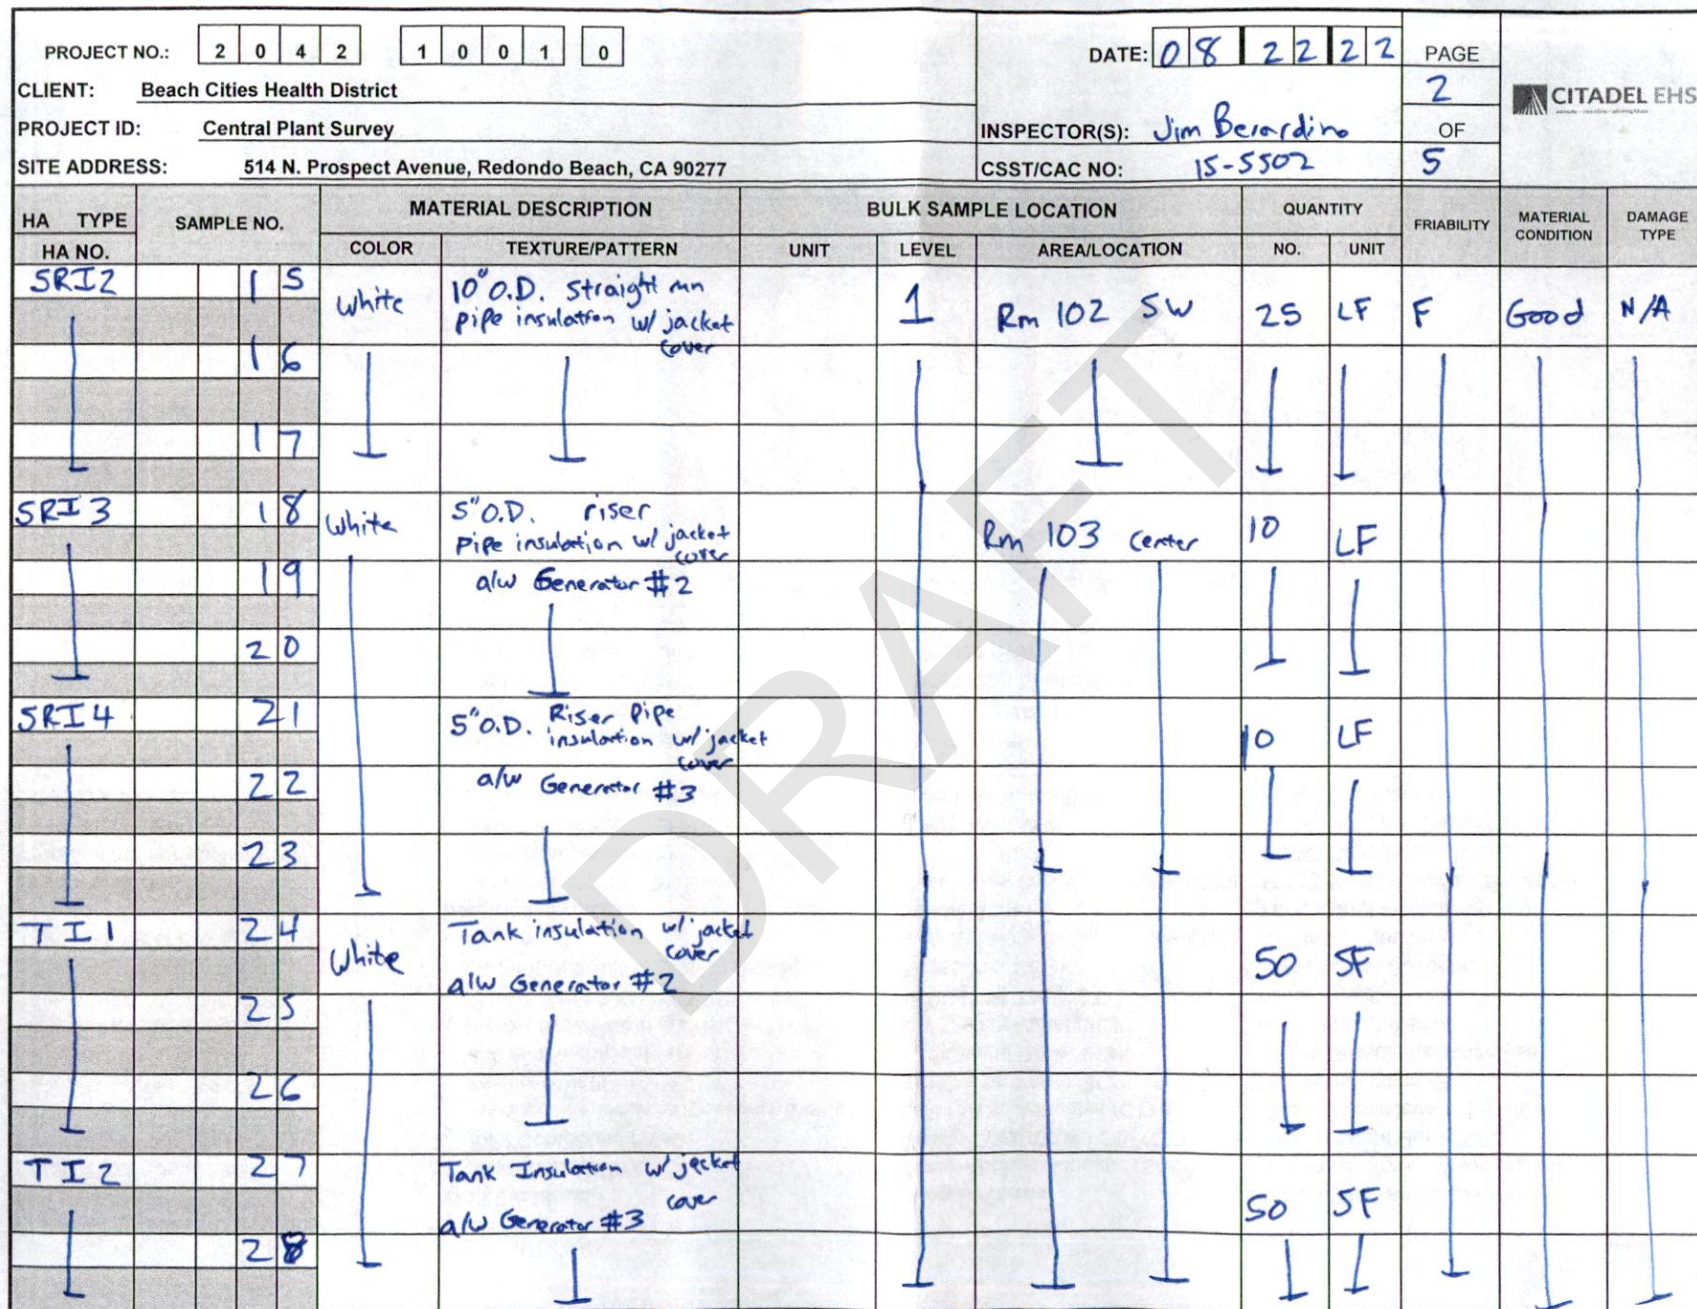 PROJECT NO.: 2 0 4 2 1 0 0 1 0
DATE: 0 8 2 2 2 2
PAGE
2
OF
5
CITADEL EHS
CLIENT: Beach Cities Health District
PROJECT ID: Central Plant Survey
INSPECTOR(S): Jim Berardino
SITE ADDRESS: 514 N. Prospect Avenue, Redondo Beach, CA 90277
CSST/CAC NO: 15-5502
HA TYPE
HA NO.
SAMPLE NO.
MATERIAL DESCRIPTION
COLOR TEXTURE/PATTERN
BULK SAMPLE LOCATION
UNIT LEVEL AREA/LOCATION
QUANTITY
NO. UNIT
FRIABILITY
MATERIAL
CONDITION
DAMAGE
TYPE
SRI2 15 White 10" O.D. Straight run
pipe insulation w/ jacket
cover
1 Rm 102 SW 25 LF F Good N/A
16
17
SRI3 18 White 5" O.D. riser
pipe insulation w/ jacket
cover
Rm 103 center 10 LF
19 a/w Generator #2
20
SRI4 21 5" O.D. Riser Pipe
insulation w/ jacket
cover
10 LF
22 a/w Generator #3
23
TI1 24 White Tank insulation w/ jacket
cover
a/w Generator #2
50 SF
25
26
TI2 27 Tank Insulation w/ jacket
cover
a/w Generator #3
50 SF
28
DRAFT